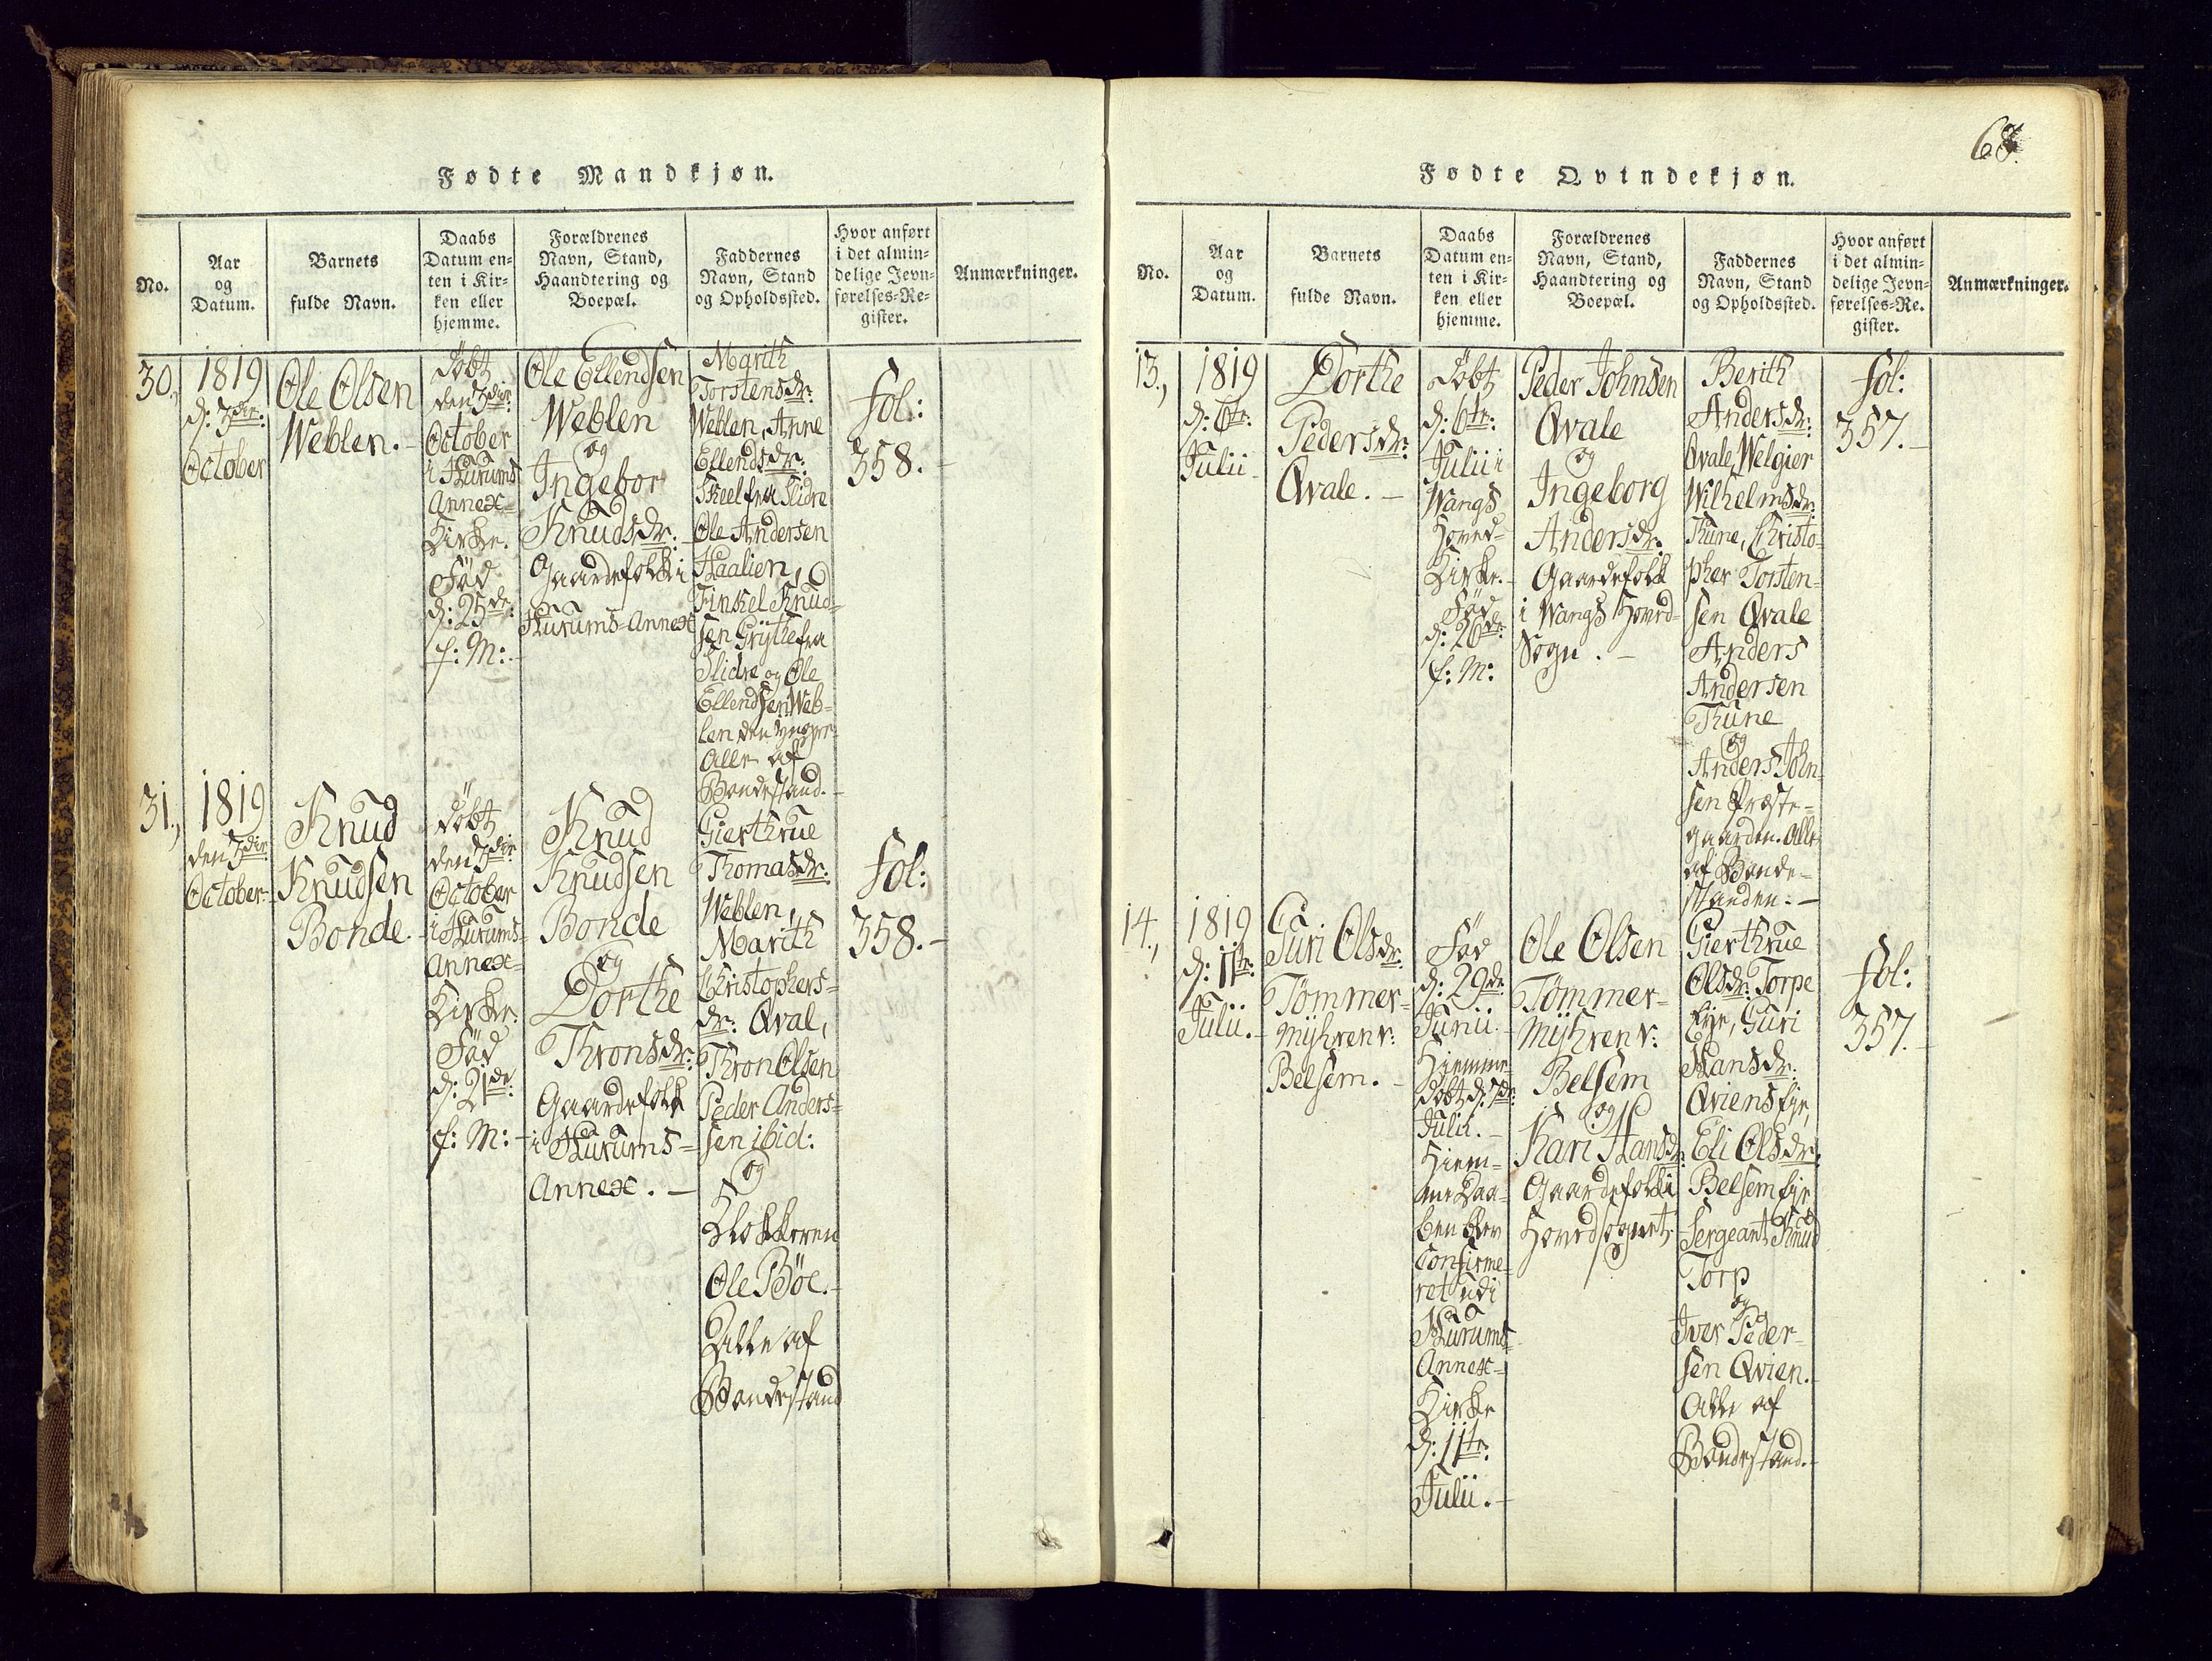 68.
Fødte Mandkjøn.
No.
Aar
og
Datum.
Barnets
fulde Navn.
Daabs
Datum en-
ten i Kir-
ken eller
hjemme.
Forældrenes
Navn, Stand,
Haandtering og
Boepæl.
Faddernes
Navn, Stand
og Opholdssted.
Hvor anført
i det almin-
delige Jevn-
førelses-Re-
gister.
Anmærkninger.
30.,
1819
d: 3die
October
Ole Olsen
Weblen.-
døbt
den 3die
October
i Hurums
Annex-
Kirke.
Fød
d: 25de
f: M:-
Ole Ellendsen
Weblen
og
Ingebor
Knudsdr.
Gaardefolk i
Hurums-Annex
Marith
Torstensdr:
Weblen, Anne
Ellendsdr:
Skeel fra Slidre
Ole Andersen
Haalien,
Finkel Knud-
sen Grythe fra
Slidre og Ole
Ellendsen Web-
len den yngre.
Alle af
Bondestand.-
fol:
358.-
31.,
1819
den 3die
October-
Knud
Knudsen
Bonde.-
døbt
den 3die
October
i Hurums-
Annex-
Kirke.
Fød
d: 21de
f: M:-
Knud
Knudsen
Bonde
og
Dorthe
Thronsdr:
Gaardefolk
i Hurums-
Annex.-
Gierthrue
Thomasdr:
Weblen,
Marith
Christophers-
dr: Qval,
Thron Olsen
Peder Anders-
sen ibid:
og
Klokkeren
Ole Böe.-
Alle af
Bondestand
fol:
358.-
Fødte Qvindekjøn.
No.
Aar
og
Datum.
Barnets
fulde Navn.
Daabs
Datum en-
ten i Kir-
ken eller
hjemme.
Forældrenes
Navn, Stand,
Haandtering og
Boepæl.
Faddernes
Navn, Stand
og Opholdssted.
Hvor anført
i det almin-
delige Jevn-
førelses-Re-
gister.
Anmærkninger.
13.,
1819
d: 6te:
Julii-
Dorthe
Pedersdr:
Qvale.-
døbt
d: 6te:
Julii i
Wangs
Hoved-
Kirke.-
Fød
d: 26de
f: M:
Peder Johnsen
Qvale
og
Ingeborg
Andersdr.
Gaardefolk
i Wangs Hoved-
Sogn.-
Berith
Andersdr:
Qvale, Welgier
Wilhelmsdr:
Thune, Christo-
pher Torsten-
sen Qvale
Anders
Andersen
Thune
og
Anders John-
sen Præste-
gaarden. Alle
af Bonde-
standen.-
fol:
357.-
14.,
1819
d: 11te:
Julii.-
Guri Olsdr:
Tömmer-
myhren v:
Belsem.-
Fød
d: 29de
Junii.-
Hiemme-
døbt d: 7de
Julii.-
Hiem-
me Daa-
ben blev
Confirme-
ret udi
Hurums-
Annex-
Kirke
d: 11te
Julii.-
Ole Olsen
Tömmer-
myhren v:
Belsem
og
Kari Hansdr.
Gaardefolk i
Hovedsognet
Gierthrue
Olsdr: Torpe
Eje, Guri
Hansdr:
Qviens Eje,
Eli Olsdr.
Belsem Eje
Sergeant Knud
Torp
og
Iver Peder-
sen Qvien.-
Alle af
Bondestand.-
fol:
357.-